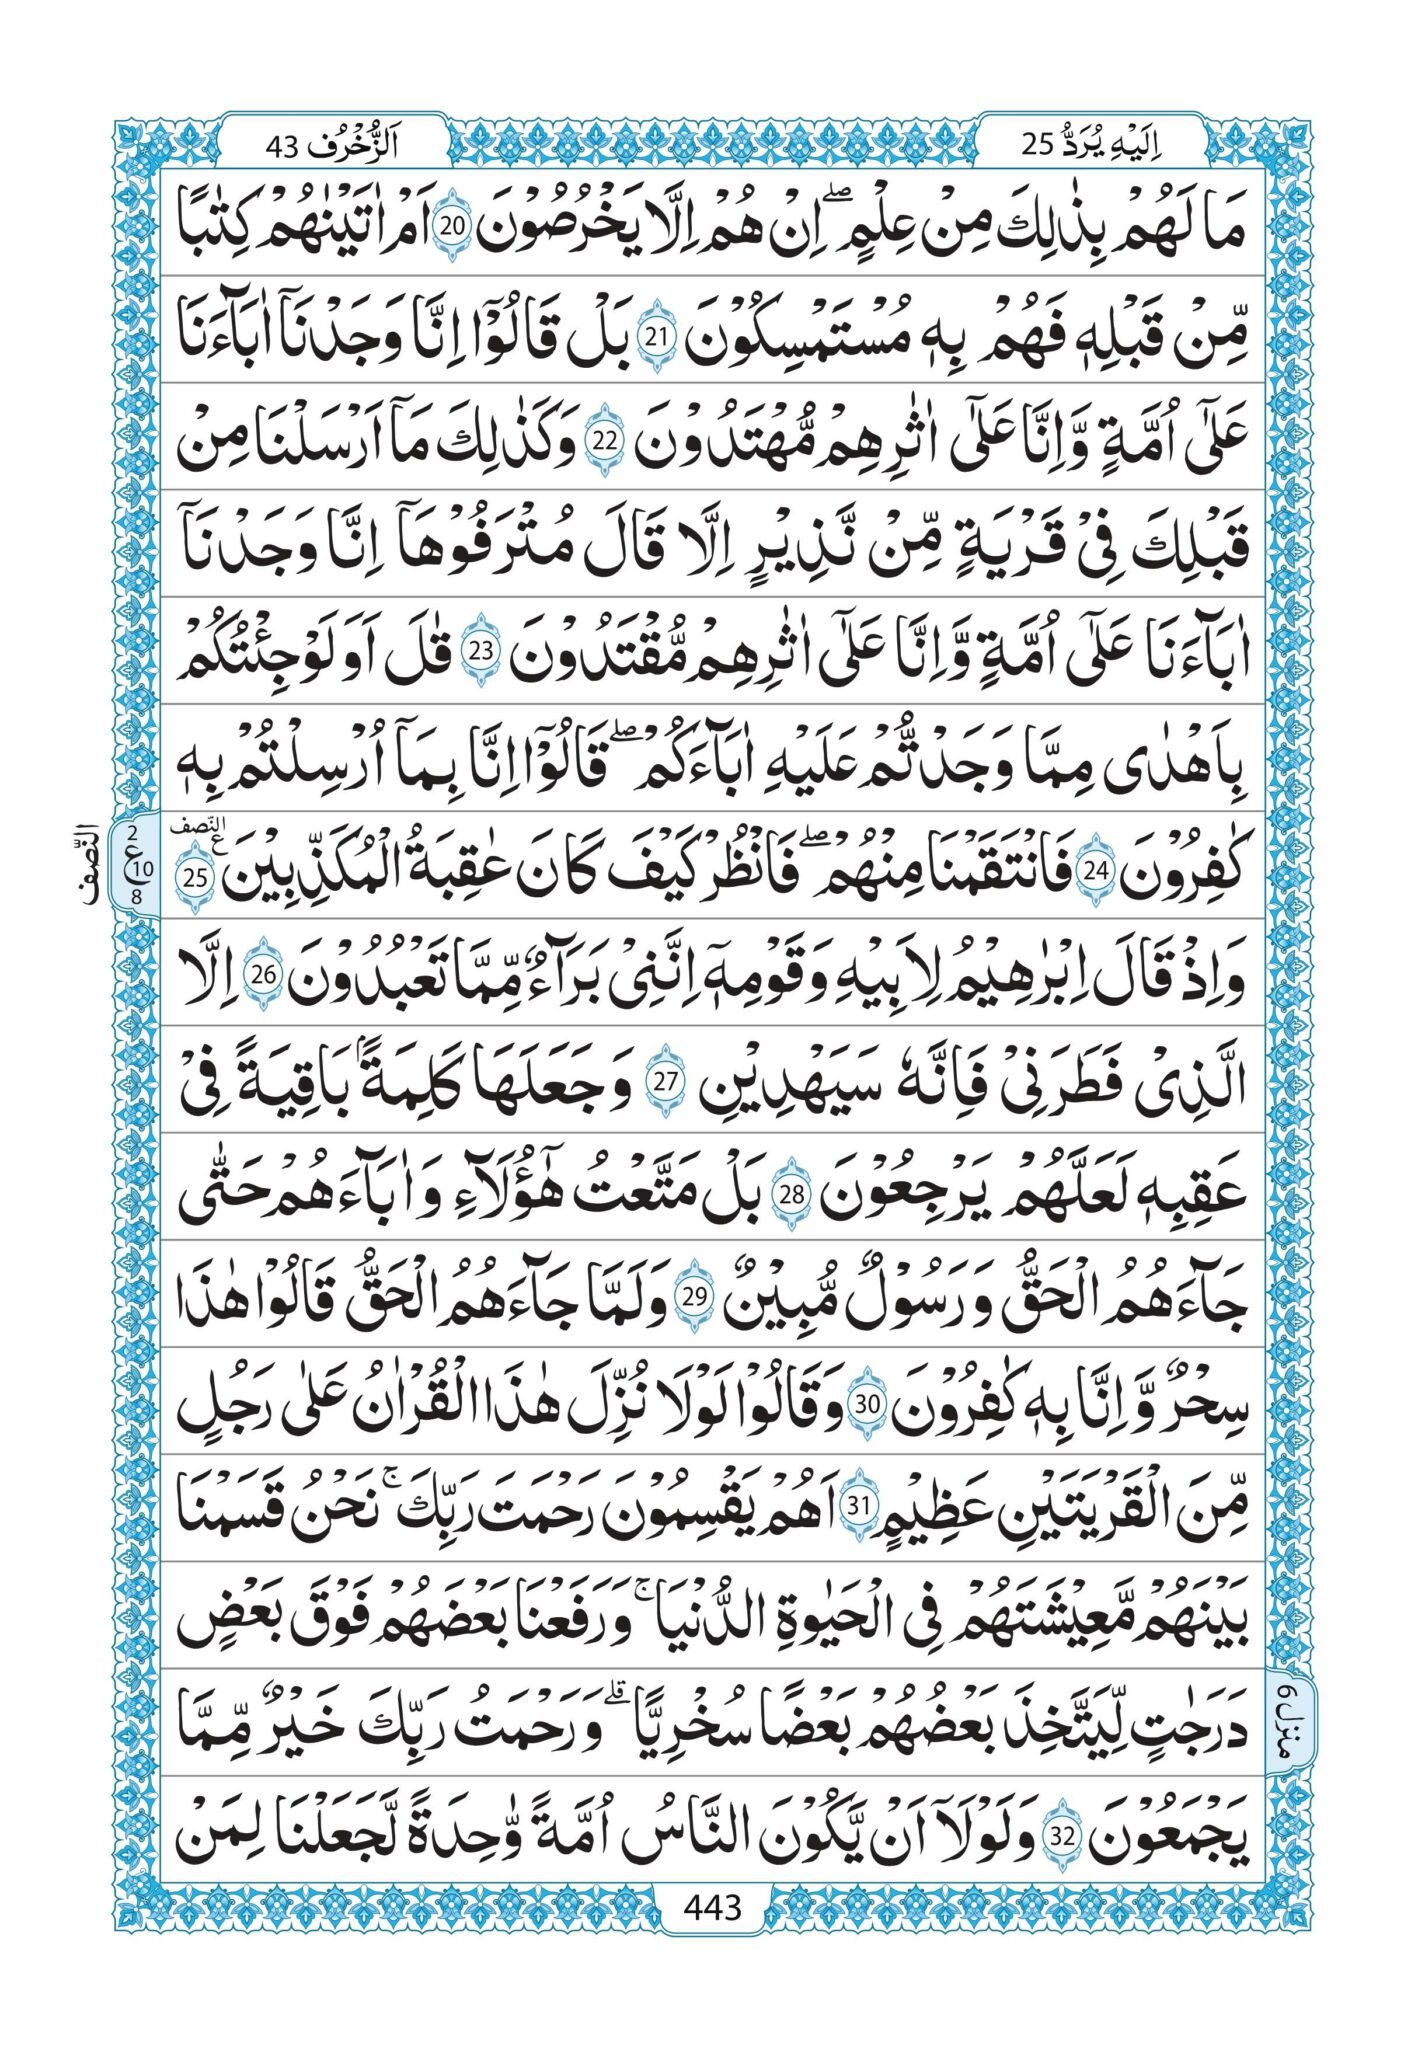 اِلَيْهِ يُرَدُّ 25
اَلزُّخْرُف 43
مَا لَهُمْ بِذٰلِكَ مِنْ عِلْمٍ ۖ اِنْ هُمْ اِلَّا يَخْرُصُوْنَ 20 اَمْ اٰتَيْنٰهُمْ كِتٰبًا
مِّنْ قَبْلِهٖ فَهُمْ بِهٖ مُسْتَمْسِكُوْنَ 21 بَلْ قَالُوْۤا اِنَّا وَجَدْنَاۤ اٰبَآءَنَا
عَلٰۤى اُمَّةٍ وَّاِنَّا عَلٰۤى اٰثٰرِهِمْ مُّهْتَدُوْنَ 22 وَكَذٰلِكَ مَاۤ اَرْسَلْنَا مِنْ
قَبْلِكَ فِىْ قَرْيَةٍ مِّنْ نَّذِيْرٍ اِلَّا قَالَ مُتْرَفُوْهَاۤ اِنَّا وَجَدْنَاۤ
اٰبَآءَنَا عَلٰۤى اُمَّةٍ وَّاِنَّا عَلٰۤى اٰثٰرِهِمْ مُّقْتَدُوْنَ 23 قٰلَ اَوَلَوْ جِئْتُكُمْ
بِاَهْدٰى مِمَّا وَجَدْتُّمْ عَلَيْهِ اٰبَآءَكُمْ ۖ قَالُوْۤا اِنَّا بِمَاۤ اُرْسِلْتُمْ بِهٖ
كٰفِرُوْنَ 24 فَانْتَقَمْنَا مِنْهُمْ ۖ فَانْظُرْ كَيْفَ كَانَ عٰقِبَةُ الْمُكَذِّبِيْنَ 25 ع النّصف
النّصف
2
ع 10
8
وَاِذْ قَالَ اِبْرٰهِيْمُ لِاَبِيْهِ وَقَوْمِهٖۤ اِنَّنِىْ بَرَآءٌ مِّمَّا تَعْبُدُوْنَ 26 اِلَّا
الَّذِىْ فَطَرَنِىْ فَاِنَّهٗ سَيَهْدِيْنِ 27 وَجَعَلَهَا كَلِمَةًۢ بَاقِيَةً فِىْ
عَقِبِهٖ لَعَلَّهُمْ يَرْجِعُوْنَ 28 بَلْ مَتَّعْتُ هٰۤؤُلَآءِ وَاٰبَآءَهُمْ حَتّٰى
جَآءَهُمُ الْحَقُّ وَرَسُوْلٌ مُّبِيْنٌ 29 وَلَمَّا جَآءَهُمُ الْحَقُّ قَالُوْا هٰذَا
سِحْرٌ وَّاِنَّا بِهٖ كٰفِرُوْنَ 30 وَقَالُوْا لَوْلَا نُزِّلَ هٰذَا الْقُرْاٰنُ عَلٰى رَجُلٍ
مِّنَ الْقَرْيَتَيْنِ عَظِيْمٍ 31 اَهُمْ يَقْسِمُوْنَ رَحْمَتَ رَبِّكَ ۚ نَحْنُ قَسَمْنَا
بَيْنَهُمْ مَّعِيْشَتَهُمْ فِى الْحَيٰوةِ الدُّنْيَا ۚ وَرَفَعْنَا بَعْضَهُمْ فَوْقَ بَعْضٍ
دَرَجٰتٍ لِّيَتَّخِذَ بَعْضُهُمْ بَعْضًا سُخْرِيًّا ۗ وَرَحْمَتُ رَبِّكَ خَيْرٌ مِّمَّا
منزل 6
يَجْمَعُوْنَ 32 وَلَوْلَاۤ اَنْ يَّكُوْنَ النَّاسُ اُمَّةً وّٰحِدَةً لَّجَعَلْنَا لِمَنْ
443